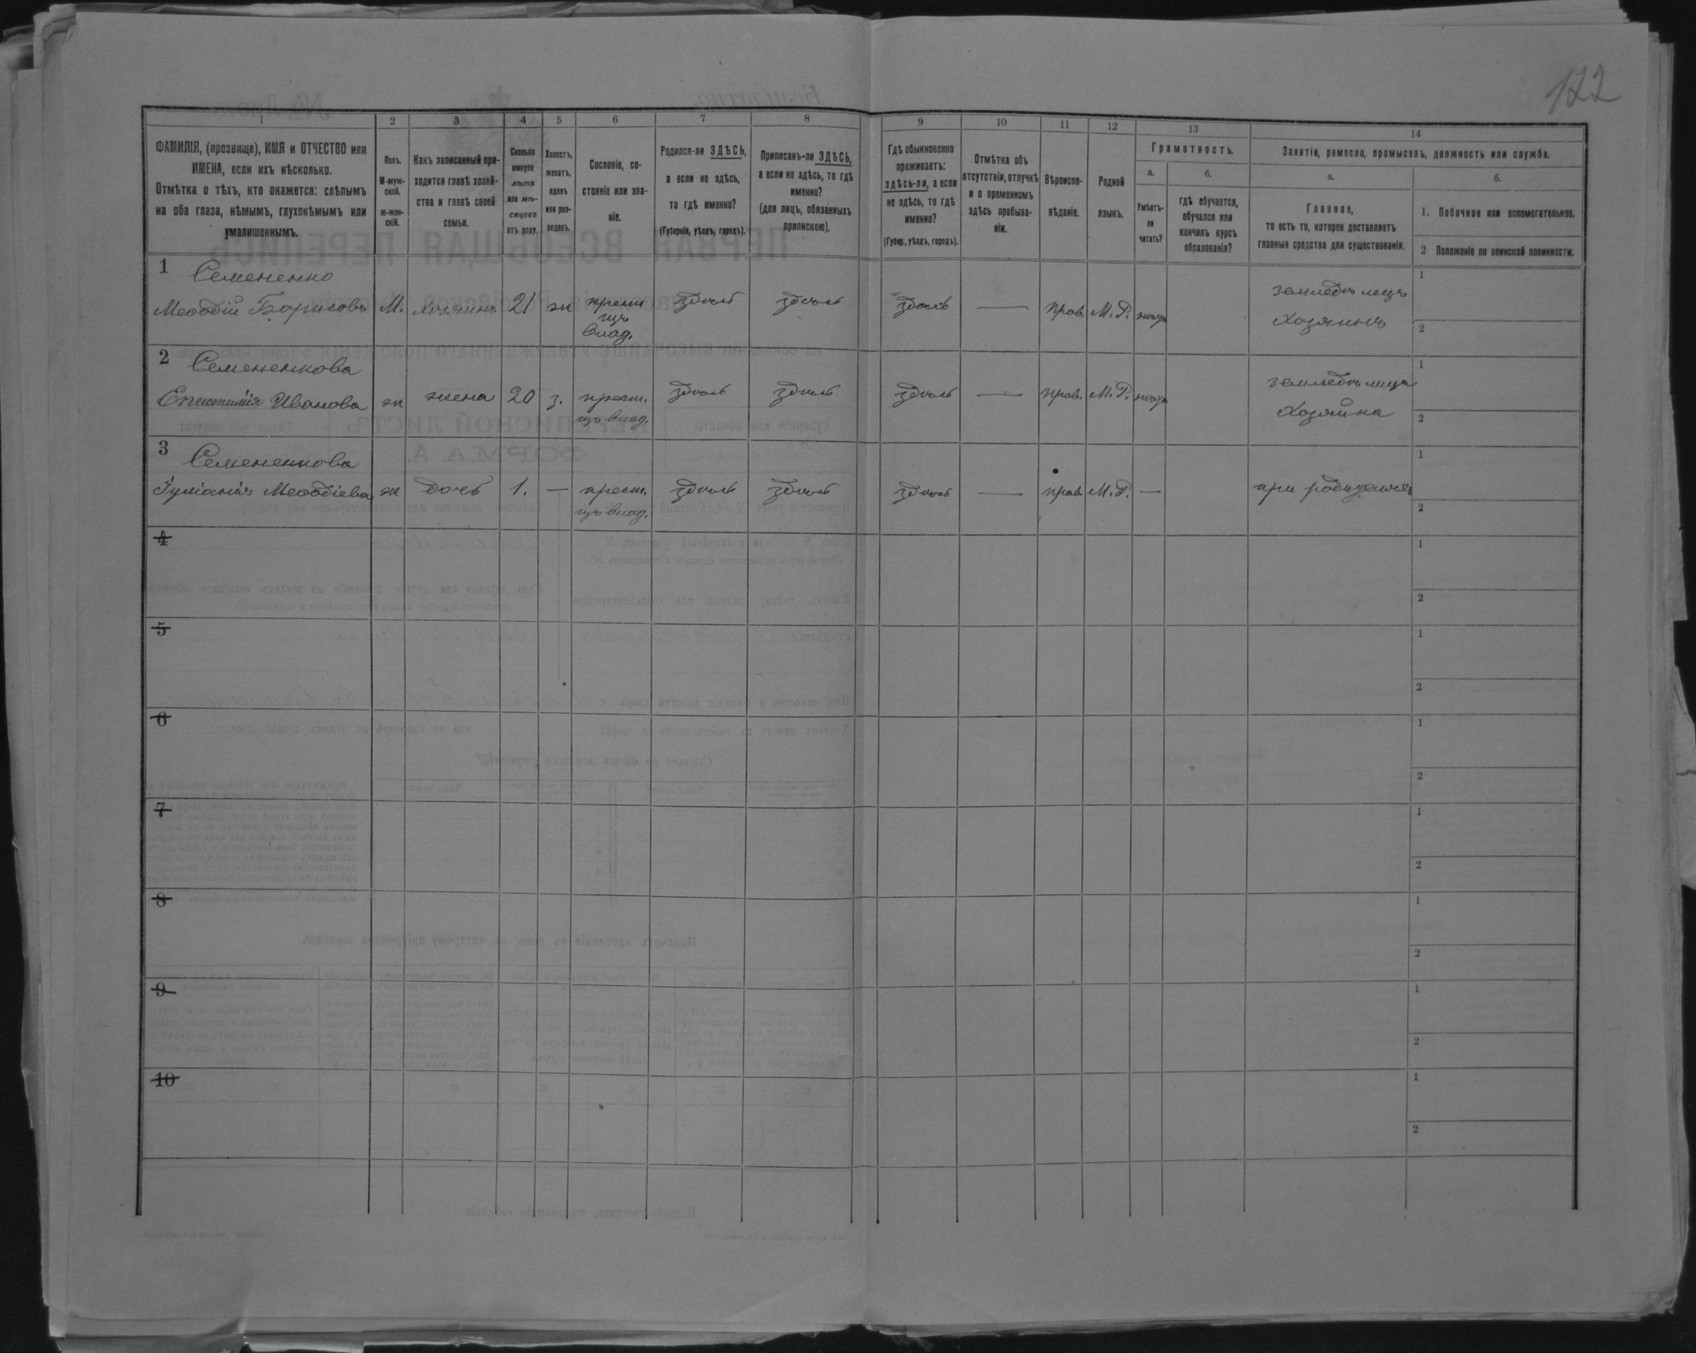 122
1 2 3 4 5 6 7 8 9 10 11 12 13 14
ФАМИЛІЯ, (прозвище), ИМЯ и ОТЧЕСТВО или
ИМЕНА, если ихъ нѣсколько.
Отмѣтка о тѣхъ, кто окажется: слѣпымъ
на оба глаза, нѣмымъ, глухонѣмымъ или
умалишеннымъ.
Полъ.
М-муж-
ской.
ж-жен-
скій.
Какъ записанный при-
ходится главѣ хозяй-
ства и главѣ своей
семьи.
Сколько
минуло
лѣтъ
или мѣ-
сяцевъ
отъ роду.
Холостъ,
женатъ,
вдовъ
или раз-
веденъ.
Сословіе, со-
стояніе или зва-
ніе.
Родился-ли ЗДѢСЬ,
а если не здѣсь,
то гдѣ именно?
(Губернія, уѣздъ, городъ).
Приписанъ-ли ЗДѢСЬ,
а если не здѣсь, то гдѣ
именно?
(для лицъ, обязанныхъ
припискою).
Гдѣ обыкновенно
проживаетъ:
здѣсь-ли, а если
не здѣсь, то гдѣ
именно?
(Губер., уѣздъ, городъ).
Отмѣтка объ
отсутствіи, отлучкѣ
и о временномъ
здѣсь пребыва-
ніи.
Вѣроиспо-
вѣданіе.
Родной
языкъ.
Грамотность.
а.
Умѣетъ-
ли
читать?
б.
гдѣ обучается,
обучался или
кончилъ курсъ
образованія?
Занятіе, ремесло, промыселъ, должность или служба.
а.
Главное,
то есть то, которое доставляетъ
главныя средства для существованія.
б.
1. Побочное или вспомогательное.
2 Положеніе по воинской повинности.
1 Семененко
Меѳодій Борисовъ М. хозяинъ 21 ж крест. здѣсь здѣсь здѣсь — прав. М.Р. земледѣлецъ
влад. хозяинъ
1
2
2 Семененкова
Иванова ж жена 20 з. крест. здѣсь здѣсь здѣсь — прав. М.Р. земледѣлица
влад. хозяйка
1
2
3 Семененкова
Іуліанія Меѳодіева ж дочь 1. — крест. здѣсь здѣсь здѣсь — прав. М.Р. — при родителяхъ
влад.
1
2
4
1
2
5
1
2
6
1
2
7
1
2
8
1
2
9
1
2
10
1
2